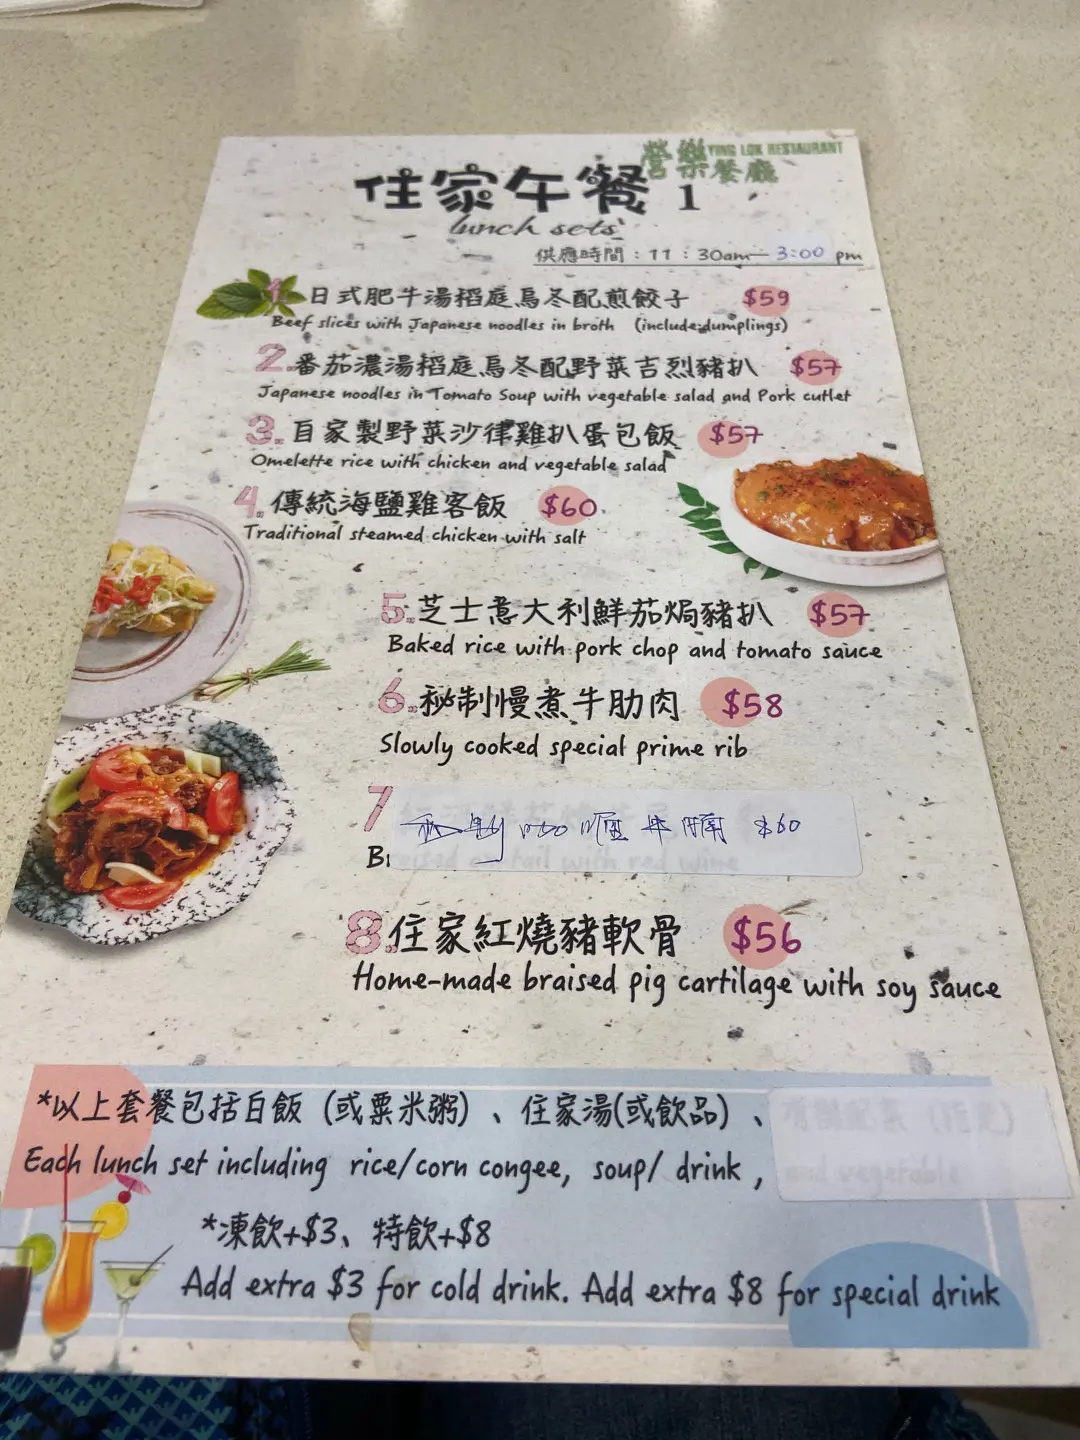 營樂餐廳 YING LOK RESTAURANT
住家午餐 1
lunch sets
供應時間：11：30am—3:00 pm
1. 日式肥牛湯稻庭烏冬配煎餃子 $59
Beef slices with Japanese noodles in broth (include dumplings)
2. 番茄濃湯稻庭烏冬配野菜吉烈豬扒 $57
Japanese noodles in Tomato Soup with vegetable salad and Pork cutlet
3. 自家製野菜沙律雞扒蛋包飯 $57
Omelette rice with chicken and vegetable salad
4. 傳統海鹽雞客飯 $60
Traditional steamed chicken with salt
5. 芝士意大利鮮茄焗豬扒 $57
Baked rice with pork chop and tomato sauce
6. 秘制慢煮牛肋肉 $58
Slowly cooked special prime rib
7 咖喱牛腩 $60
8. 住家紅燒豬軟骨 $56
Home-made braised pig cartilage with soy sauce
*以上套餐包括白飯（或粟米粥）、住家湯(或飲品）、
Each lunch set including rice/corn congee, soup/ drink ,
*凍飲+$3、特飲+$8
Add extra $3 for cold drink. Add extra $8 for special drink